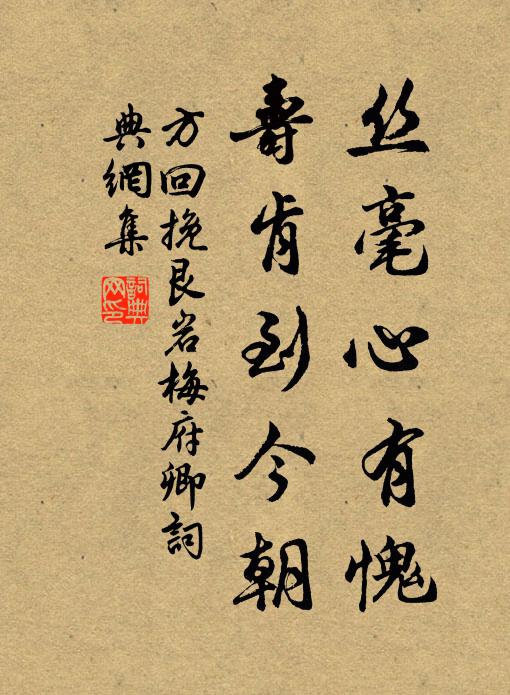 丝毫心有愧
壽肯到今朝
方回挽艮岩梅府卿詞
典網集
詞典网印